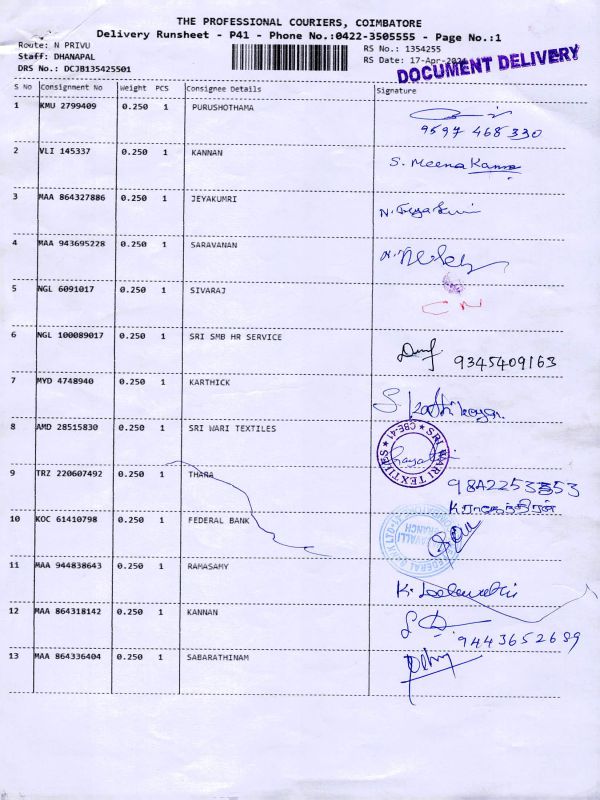 THE PROFESSIONAL COURIERS, COIMBATORE
Delivery Runsheet - P41 - Phone No.:0422-3505555 - Page No.:1
Route: N PRIVU
Staff: DHANAPAL
DRS No.: DCJB135425501
RS No.: 1354255
RS Date: 17-Apr-2024
DOCUMENT DELIVERY
S No Consignment No Weight PCS Consignee Details Signature
1 KMU 2799409 0.250 1 PURUSHOTHAMA
9597 468 330
2 VLI 145337 0.250 1 KANNAN S. Meena Kanna
3 MAA 864327886 0.250 1 JEYAKUMRI
4 MAA 943695228 0.250 1 SARAVANAN
5 NGL 6091017 0.250 1 SIVARAJ CN
6 NGL 100089017 0.250 1 SRI SMB HR SERVICE 9345409163
7 MYD 4748940 0.250 1 KARTHICK
8 AMD 28515830 0.250 1 SRI WARI TEXTILES
SRI WARI TEXTILES ★ CBE-41 ★
9 TRZ 220607492 0.250 1 THARA
10 KOC 61410798 0.250 1 FEDERAL BANK
11 MAA 944838643 0.250 1 RAMASAMY
12 MAA 864318142 0.250 1 KANNAN
9443652689
13 MAA 864336404 0.250 1 SABARATHINAM